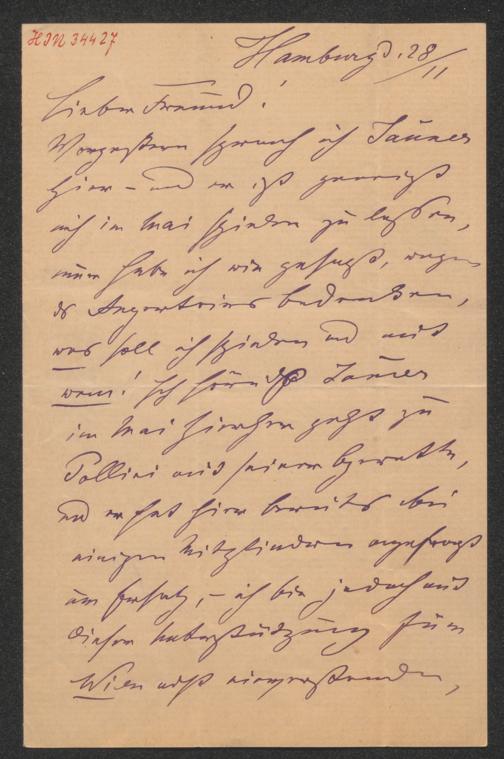 HIN 34427
Hamburg d. 28/11
Lieber Freund!
Vorgestern sprach ich Jauner
hier – und er ist geneigt
mich im Mai spielen zu lassen,
nun habe ich wie gesagt, wegen
des Repertoires bedenken,
was soll ich spielen und mit
wem! Ich hörte Jauner
im Mai hierher geht zu
Pollini mit seiner Operette,
und er hat hier bereits bei
einigen Mitgliedern angefragt
um Ersatz, – ich bin jedoch mit
dieser Unterstützung für
Wien nicht einverstanden,